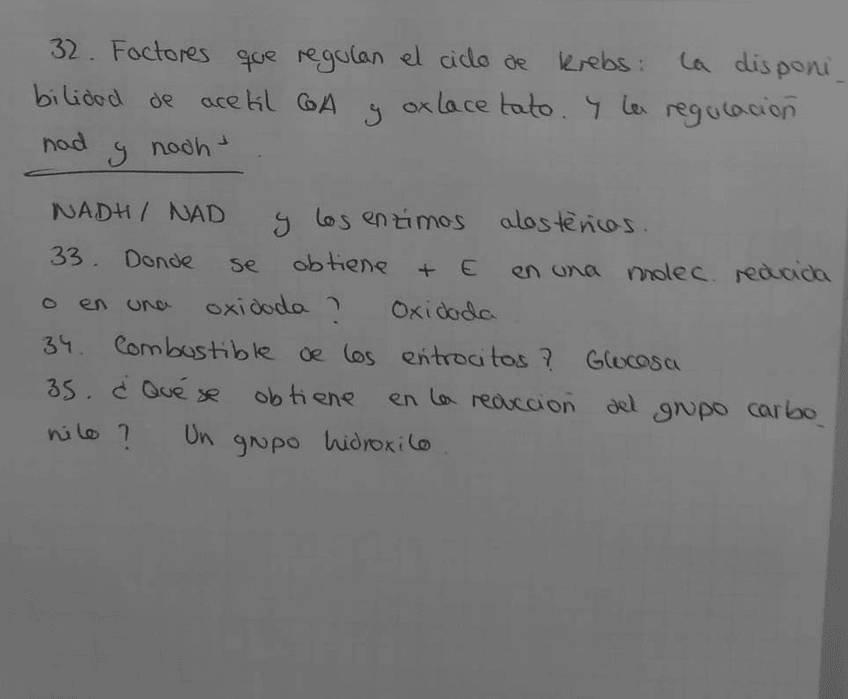 32. Factores que regulan el ciclo de krebs: la disponi_
bilidad de acetil CoA y oxlacetato. Y la regulación
nad y nadh+.
NADH / NAD y los enzimos alostéricos.
33. Donde se obtiene + E en una molec. reducida
o en una oxidada? Oxidada
34. Combustible de los eritrocitos? Glucosa
35. ¿Qué se obtiene en la reacción del grupo carbo_
nilo? Un grupo hidroxilo.